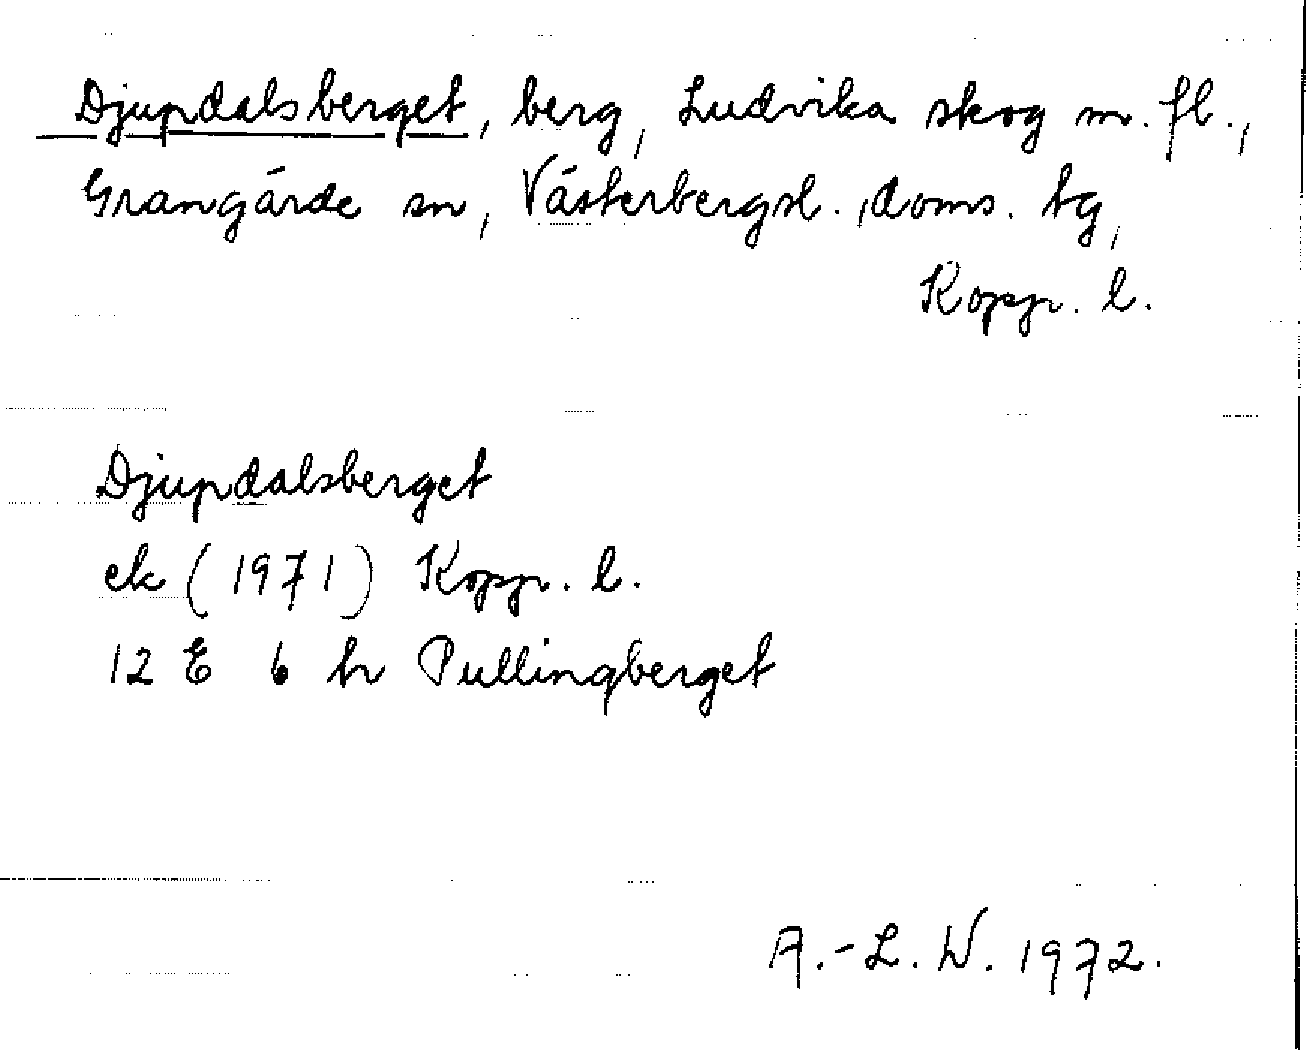 Djupdalsberget, berg, Ludvika skog m. fl.,
Grangärde sn, Västerbergsl. doms. tg,
Koppr. l.
Djupdalsberget
ek (1971) Koppr. l.
12 E 6 h Pullingberget
A.-L. W. 1972.